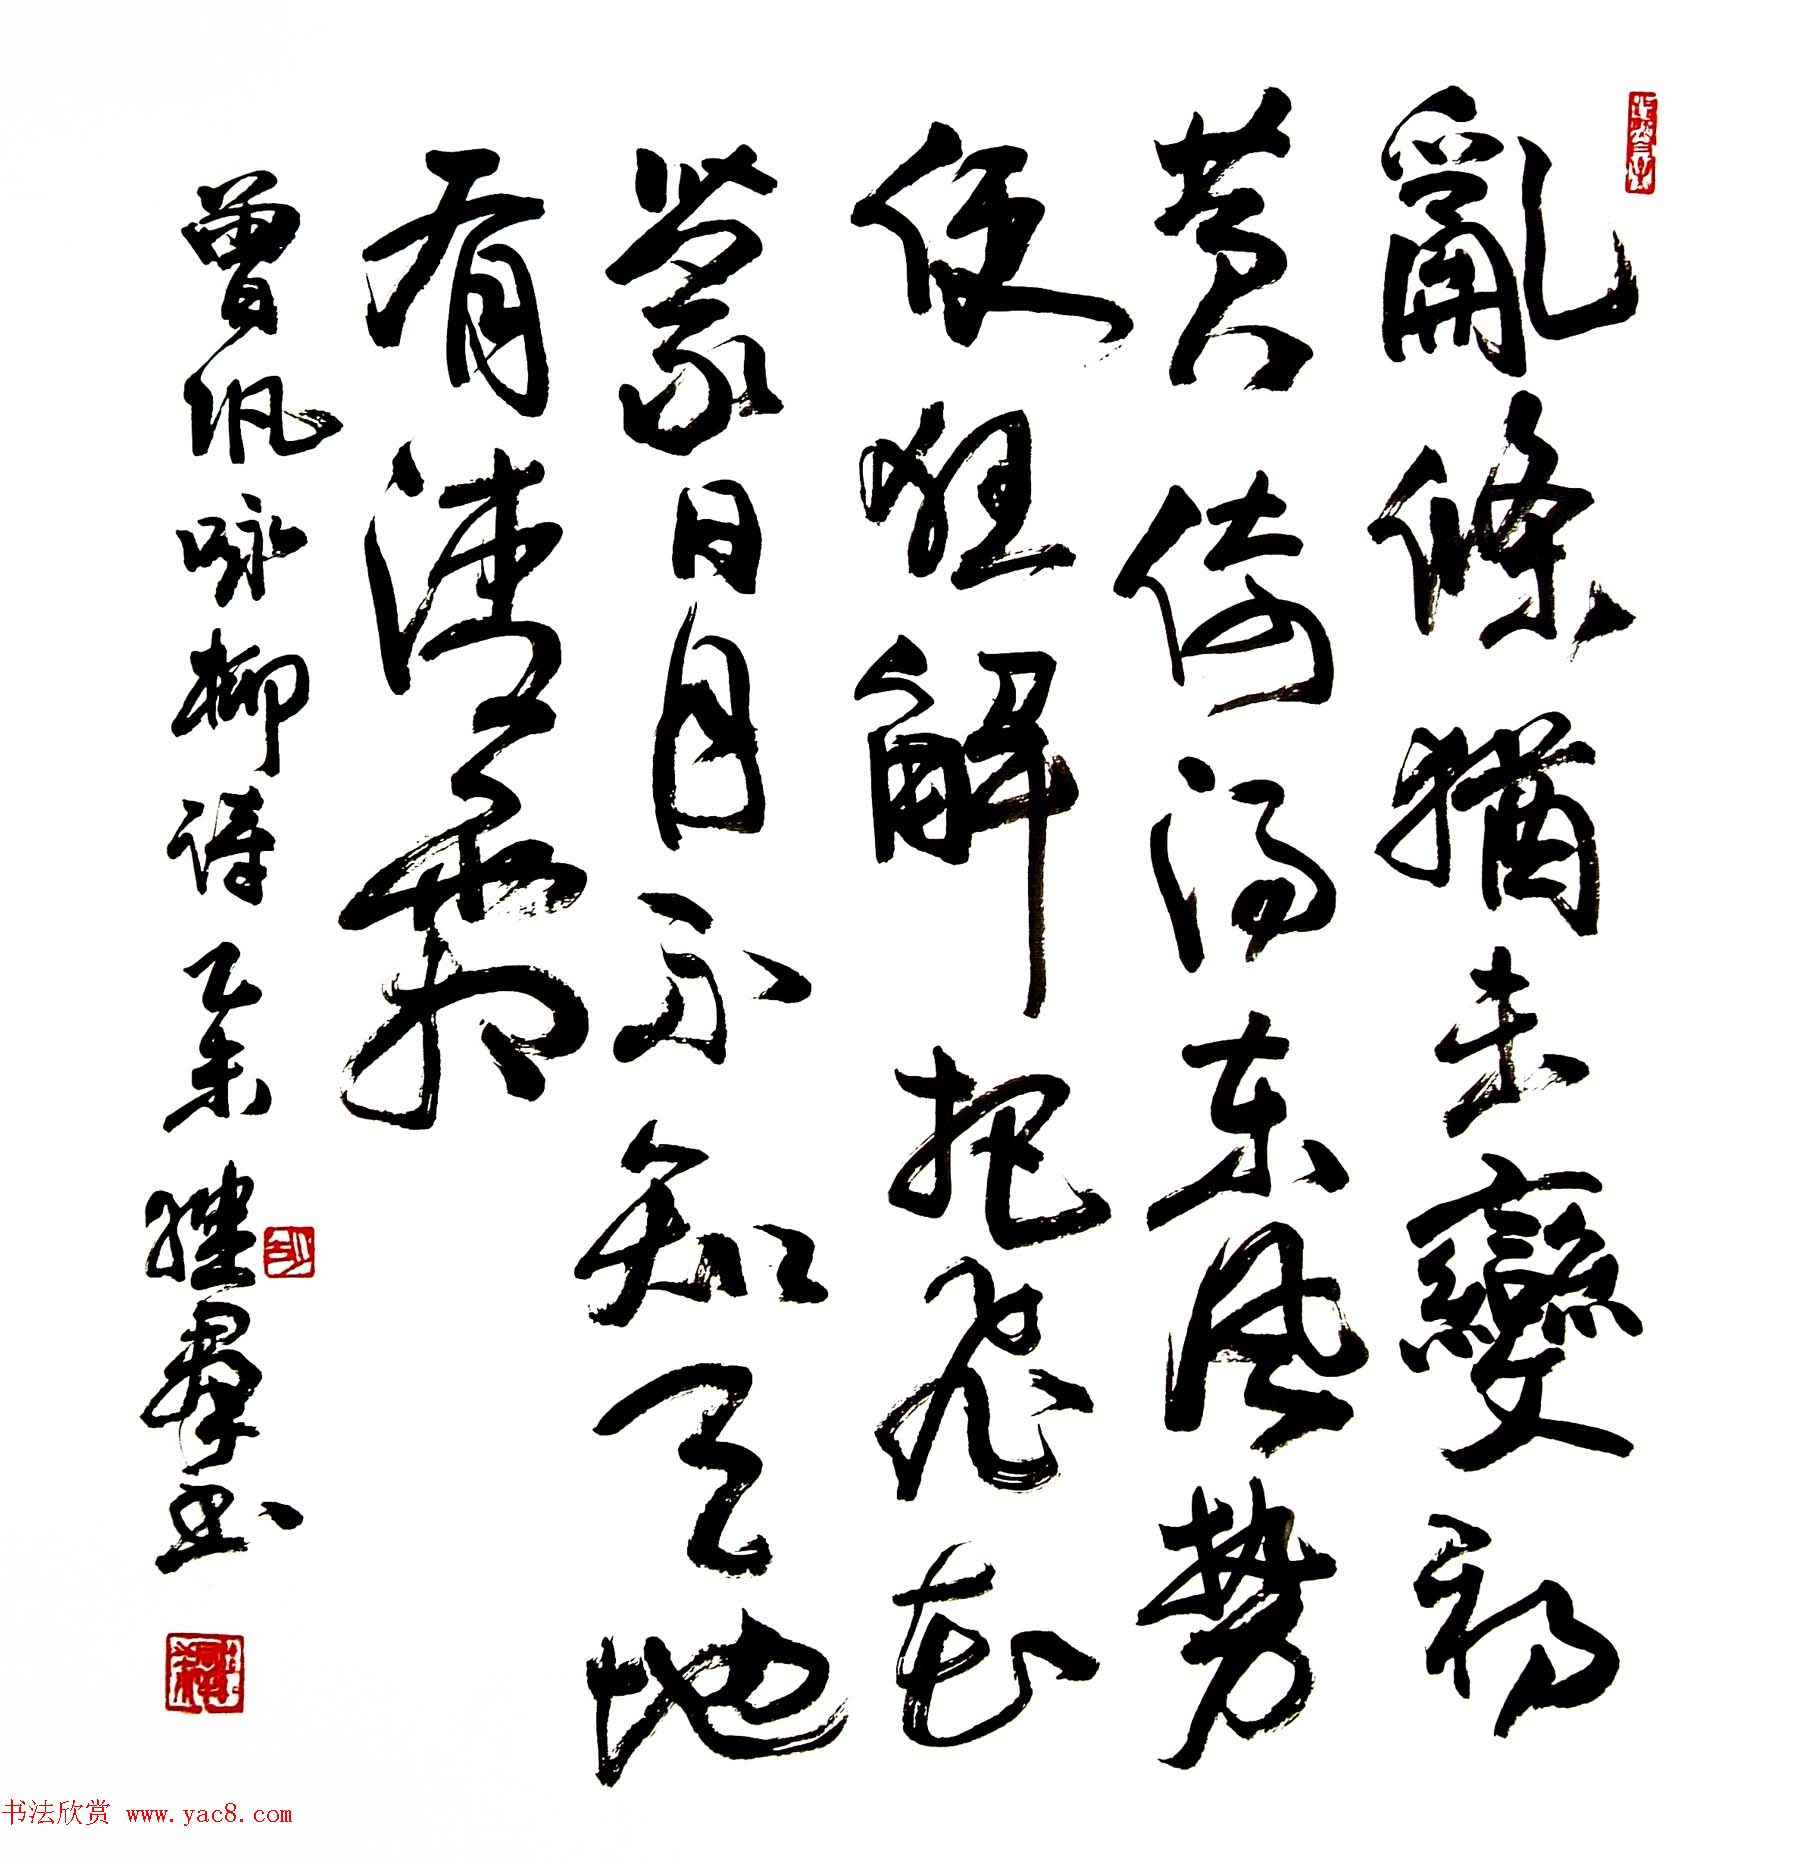 亂條猶未變初
黄倚得東風勢
便狂解把飛花
蒙日月不知天地
有清霜
曾鞏咏柳诗乙未
继群书
书法欣赏 www.yac8.com